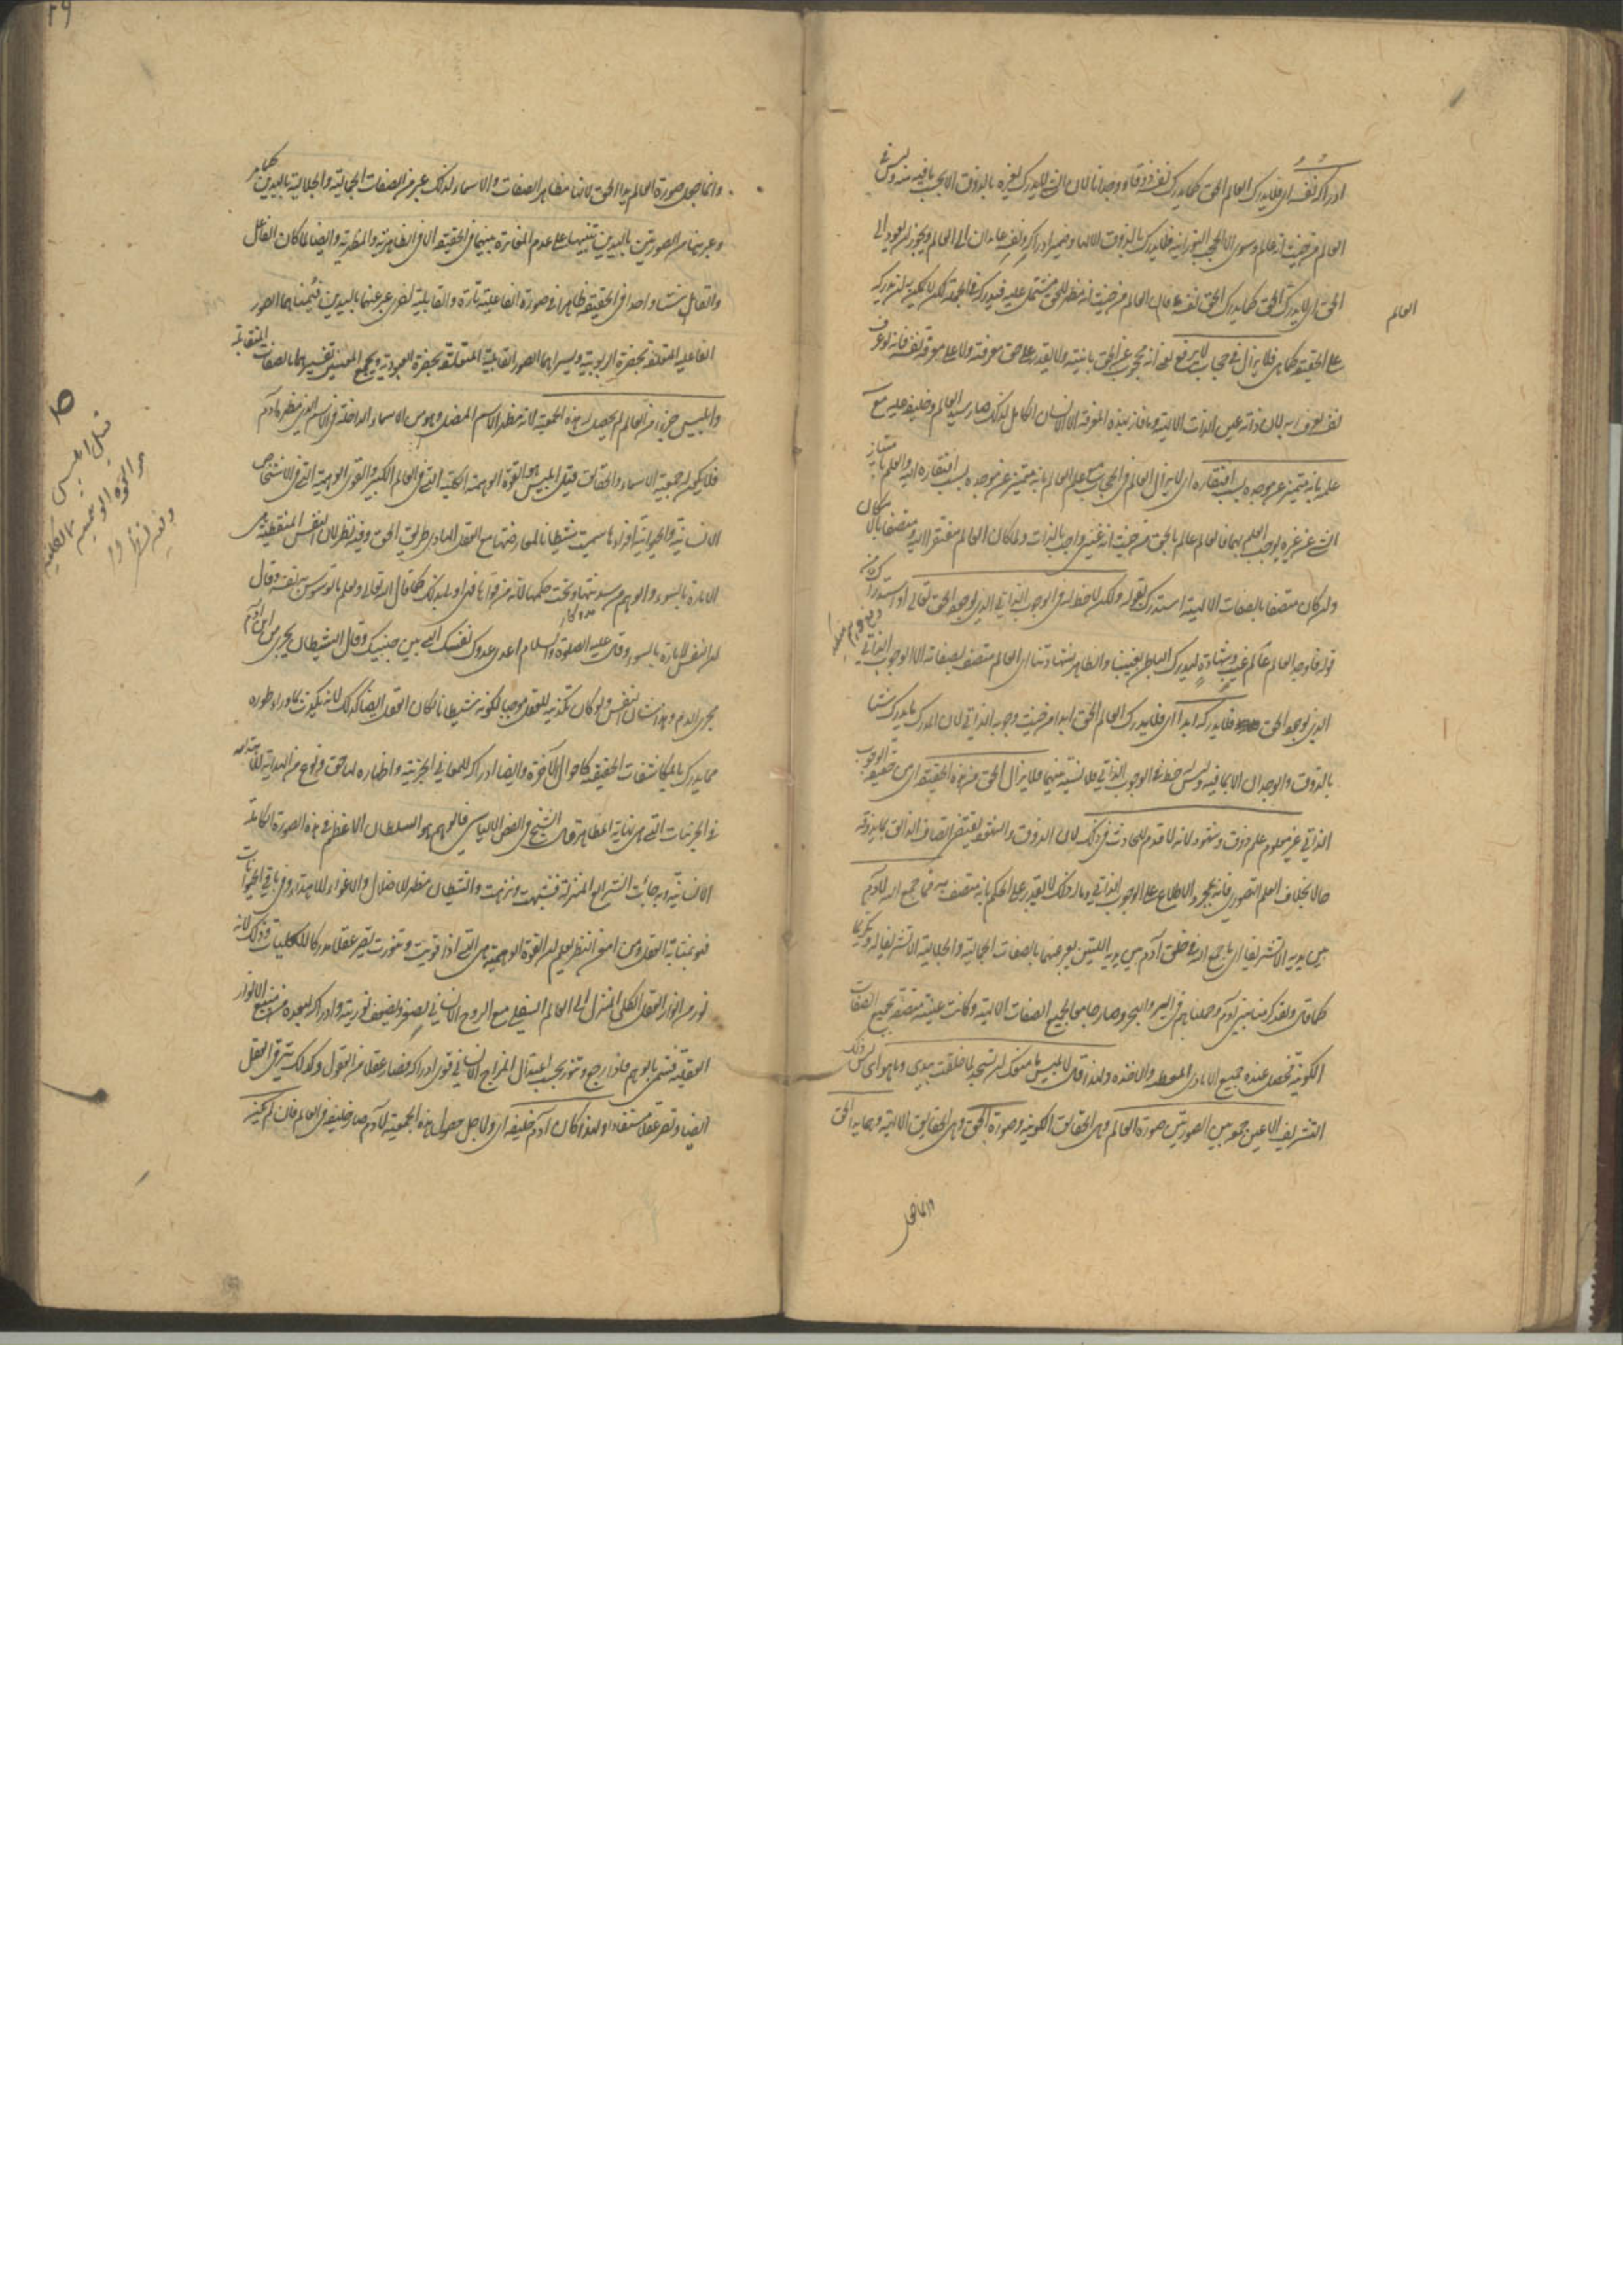 ادراكه نفسه اى فلا يدرك العالم الحق كما يدرك نفسه ذوقا ووجدانا لان الشئ لا يدرك غيره بالذوق الا بحسب ما فيه منه وليس فى
العالم من حيث انه عالم وسوى الا الحجب النورانية فلا يدرك بالذوق الا اياها وضمير ادراكه ونفسه عايدان الى العالم ويجوز ان يعود الى
الحق اى لا يدرك الحق كما يدرك الحق نفسه فان العالم من حيث انه مظهر للحق مشتمل عليه فيدركه فى الجملة لكن لا يمكن ان يدركه
العالم
على الحقيقة كما هى فلا يزال فى حجاب لا يرفع بمعنى انه محجوب عن الحق بانيته ولا يقدر على حق معرفته ولا على معرفة نفسه فانه لو عرف
نفسه لعرف ربه لان ذاته عين الذات الالهية وما فاز بهذه المعرفة الا الانسان الكامل لذلك صار سيد العالم وخليفة عليه مع
علمه بانه متميز عن موجده بسبب افتقاره اى لا يزال العالم فى الحجاب مع علم العالم بانه متميز عن موجده بسبب افتقاره اليه والعلم بامتياز
الشئ عن غيره يوجب العلم بهما فالعالم عالم بالحق من حيث انه غنى واجب بالذات ولما كان العالم مفتقرا اليه ومتصفا بالامكان
وان كان متصفا بالصفات الالهية استدرك بقوله ولكن لا حظ له فى الوجوب الذاتى الذى لوجود الحق تعالى او استدراك من
قوله فاوجد العالم عالم غيب وشهادة ليدرك الباطن بغيبنا والظاهر بشهادتنا اى العالم متصف بصفاته الا الوجوب الذاتى
الذى لوجود الحق فلا يدركه ابدا اى فلا يدرك العالم الحق ابدا من حيث وجوبه الذاتى لان المدرك ما يدرك شيئا
بالذوق والوجدان الا بما فيه وليس له حظ فى الوجوب الذاتى فلا نسبة بينهما فلا يزال الحق من هذه الحقيقة اى من حقيقة الوجوب
الذاتى غير معلوم علم ذوق وشهود لانه لا قدم للحادث فى ذلك لان الذوق والشهود يقتضى اتصاف الذائق بما يذوقه
حالا بخلاف العلم التصورى فانه بمجرد الاطلاع على الوجوب الذاتى وما له ذلك لا يقدر على الحكم بانه متصف به فما جمع الله لآدم
بين يديه الا تشريفا اى ما جمع الله فى خلق آدم بين يديه اللتين يعبر عنهما بالصفات الجمالية والجلالية الا تشريفا له وتكريما
كما قال ولقد كرمنا بنى آدم وحملناهم فى البر والبحر وصار جامعا لجميع الصفات الالهية وكانت عينه متصفة بجميع الصفات
الكونية فحصل عنده جميع الايادى المعطية والاخذة ولهذا قال لابليس ما منعك ان تسجد لما خلقت بيدى وما هو اى ليس ذلك
التشريف الا عين جمعه بين الصورتين صورة العالم وهى الحقائق الكونية وصورة الحق وهى الحقائق الالهية وهما يدا الحق
وانما جعل
وانما جعل صورة العالم يد الحق لانها مظاهر الصفات والاسماء لذلك عبر عن الصفات الجمالية والجلالية باليدين كما مر
وعبر هنا عن الصورتين باليدين تنبيها على عدم المغايرة بينهما فى الحقيقة الا فى الظاهرية والمظهرية وايضا لما كان الفاعل
والقابل شيئا واحدا فى الحقيقة ظاهرا فى صورة الفاعلية تارة والقابلية اخرى عبر عنهما باليدين فيمناهما الصور
الفاعلية المتعلقة بحضرة الربوبية ويسراهما الصور القابلية المتعلقة بحضرة العبودية ويجمع المعنيين تفسيرهما بالصفات المتقابلة
وابليس جزء من العالم لم يحصل له هذه الجمعية لانه مظهر الاسم المضل وهو من الاسماء الداخلة فى الاسم الذى مظهره آدم
فلا يكون له جمعية الاسماء والحقائق قيل ابليس هو القوة الوهمية الكلية التى فى العالم الكبير والقوى الوهمية التى فى الاشخاص
الانسانية والحيوانية افرادها سميت شيطانا لمعارضتها مع العقل الهادى طريق الحق وفيه نظر لان النفس المنطبعة هى
الامارة بالسوء والوهم من سدنتها وتحت حكمها لانه من قواها فهى اولى بذلك كما قال الله تعالى ونعلم ما توسوس به نفسه وقال
ان النفس لامارة بالسوء وقال عليه الصلوة والسلام اعدى عدوك نفسك التى بين جنبيك وقال الشيطان يجرى من ابن آدم
مجرى الدم وهذا شان النفس ولو كان تكذيبه للعقل موجبا لكونه شيطانا لكان العقل ايضا كذلك لانه يكذب ما وراء طوره
مما يدرك بالمكاشفات الحقيقية كاحوال الآخرة وايضا ادراكه للمعانى الجزئية واظهاره لها حق ونوع من الهداية للاهتداء به
فى الجزئيات التى هى نهاية المظاهر قال الشيخ فى الفص الالياسى فالوهم هو السلطان الاعظم فى هذه الصورة الكاملة
الانسانية وبه جاءت الشرائع المنزلة فشبهت ونزهت والشيطان مظهر الاضلال والاغواء لا الاهتداء وفى باقى الحيوانات
فهو بمثابة العقل ومن امعن النظر يعلم ان القوة الوهمية هى التى اذا قويت وتنورت تصير عقلا مدركا للكليات وذلك لانه
نور من انوار العقل الكلى المنزل الى العالم السفلى مع الروح الانسانى فصغر وضعف نوريته وادراكه لبعده من منبع الانوار
العقلية فتسمى بالوهم فاذا رجع وتنور بحسب اعتدال المزاج الانسانى قوى ادراكه وصار عقلا من العقول وكذلك يترقى العقل
ايضا ويصير عقلا مستفادا ولهذا كان آدم خليفة اى ولاجل حصول هذه الجمعية لآدم صار خليفة فى العالم فان لم يكن
قيل ابليس
هو القوة الوهمية الكلية
وفيه نظر